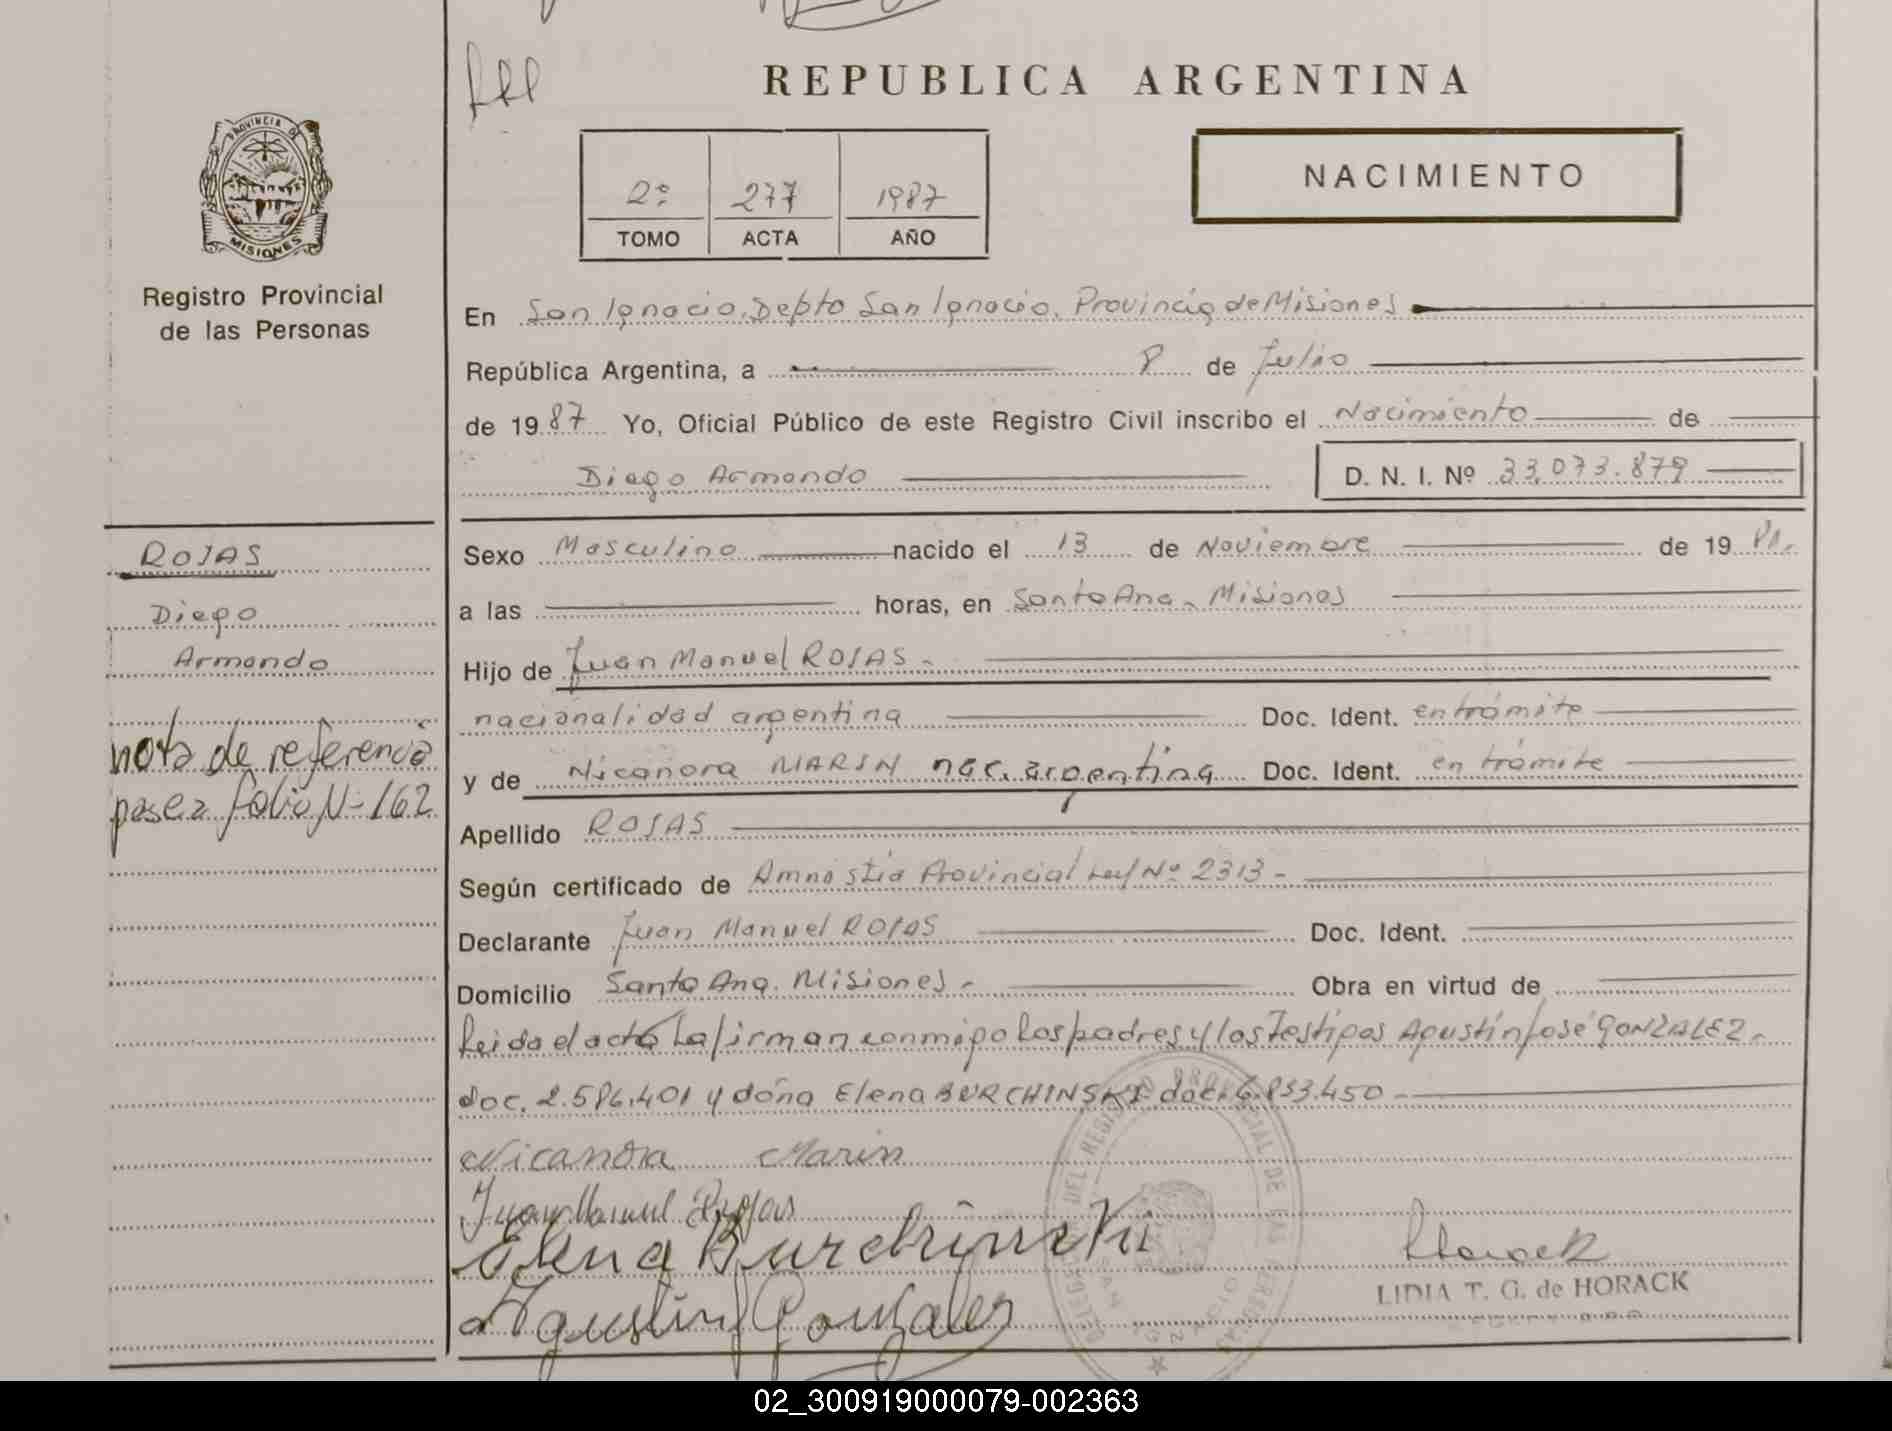 REPUBLICA ARGENTINA
PROVINCIA DE
MISIONES
Registro Provincial
de las Personas
2º 277 1987
TOMO ACTA AÑO
NACIMIENTO
En San Ignacio, Depto San Ignacio. Provincia de Misiones
República Argentina, a 8 de Julio
de 1987 Yo, Oficial Público de este Registro Civil inscribo el Nacimiento de
Diego Armando D. N. I. Nº 33.073.879
ROJAS
Diego
Armando
nota de referencia
pase a folio Nº 162
Sexo Masculino nacido el 13 de Noviembre de 19
a las horas, en Santa Ana - Misiones
Hijo de Juan Manuel ROJAS -
nacionalidad argentina Doc. Ident. en trámite
y de Nicanora MARIN nac. argentina Doc. Ident. en trámite
Apellido ROJAS
Según certificado de Amnistia Provincial Ley Nº 2313 -
Declarante Juan Manuel ROJAS Doc. Ident.
Domicilio Santa Ana. Misiones - Obra en virtud de
Leida el acta La firman conmigo los padres y los Testigos Agustin José GONZALEZ -
doc. 2.586.401 y doña Elena BURCHINSKI doc. 6.833.450 -
Nicanora Marin
Juan Manuel Rojas
Elena Burchinski
Agustin J Gonzalez
Horack
LIDIA T. G. de HORACK
DEL REGISTRO PROVINCIAL DE LAS PERSONAS
SAN IGNACIO
02_300919000079-002363